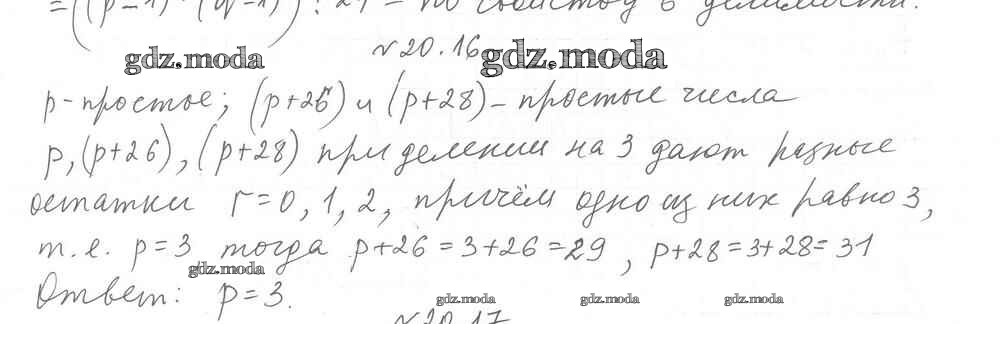 = ((p-1) · (q-1)) ⋮ 24 - по свойству делимости.
№20.16
gdz.moda gdz.moda
p-простое; (p+26) и (p+28) - простые числа
p, (p+26), (p+28) при делении на 3 дают разные
остатки r=0, 1, 2, причём одно из них равно 3,
т.е. p=3 тогда p+26=3+26=29, p+28=3+28=31
gdz.moda
Ответ: p=3.
gdz.moda gdz.moda gdz.moda
№20.17